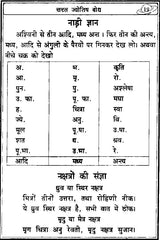 सरल ज्योतिष बोध
नाड़ी ज्ञान
अश्विनी से तीन आदि, मध्य अन्त। फिर तीन की अन्त्य,
मध्य, आदि से अंगुली के पैरवों पर गिनकर देख लो। अथवा
नीचे चक्र को देखो
अ. भ. कृति
आ. मृ. रो.
पुन. पु. अश्लेषा
उ. फा. पू. फा. मघा
ह. चित्रा स्वा
ज्ये. अनु. वि.
मूल पू.षा. उ.षा.
शत ध. श्रव.
पू.भा. उ.भा. रे.
आदि मध्य अन्त्य
नक्षत्रों की संज्ञा
ध्रुव या स्थिर नक्षत्र
तीनों उत्तरा, तथा रोहिणी नीक।
ये ध्रुव स्थिर नक्षत्र है, सभी बात में ठीक।
मृदु या मैत्र नक्षत्र
मृग चित्रा अनु रेवती, मृदु नक्षत्र सुजान।